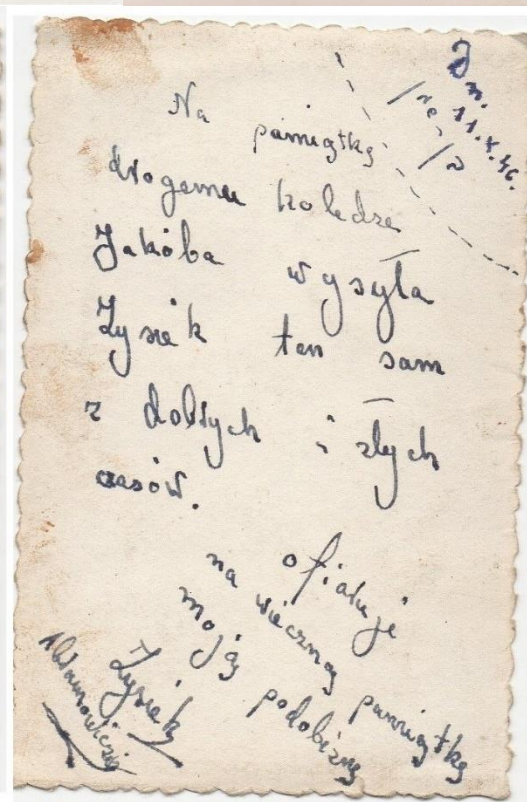 Na pamiątkę
drogemu koledze
Jakóba wysyła
Zysiek ten sam
z dobrych i złych
czasów.
ofiakuje
na wieczną pamiątkę
moją podobiznę
Zysiek
Dn.
11.X.46.